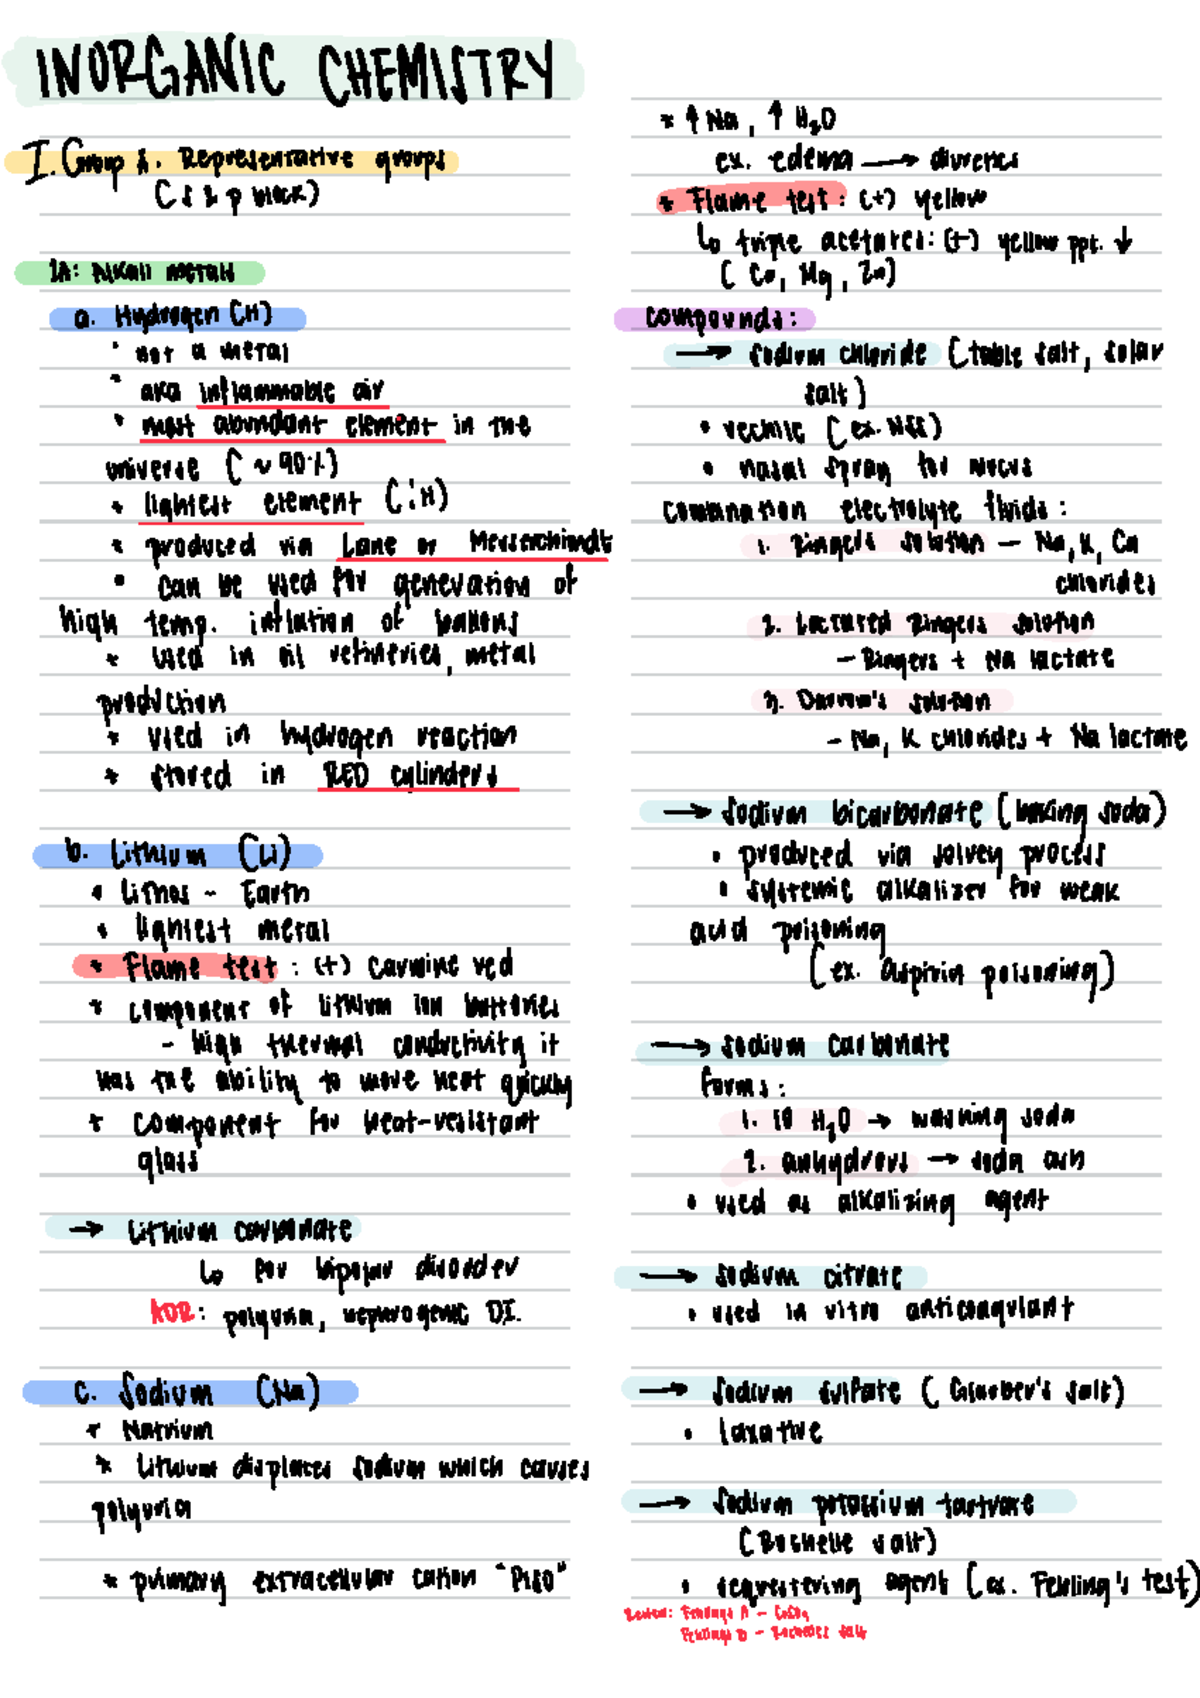 INORGANIC CHEMISTRY
I. Group A. Representative groups
(s & p block)
IA: Alkali metals
a. Hydrogen (H)
• not a metal
• aka inflammable air
* most abundant element in the
universe (~90%)
* lightest element (:H)
* produced via Lane or Messerchimdt
• can be used for generation of
high temp. inflation of ballons
* used in oil refineries, metal
production
* used in hydrogen reaction
* stored in RED cylinders
b. Lithium (Li)
• Lithos - Earth
• lightest metal
* Flame test : (+) carmine red
* component of lithium ion batteries
- high thermal conductivity it
has the ability to move heat quickly
* component for heat-resistant
glass
→ Lithium carbonate
↳ for bipolar disorder
ADR: polyuria, nephrogenic DI.
c. Sodium (Na)
* Natrium
* Lithium displaces sodium which causes
polyuria
* primary extracellular cation "PISO"
* ↑ Na, ↑ H₂O
ex. edema → diuretics
* Flame test: (+) yellow
↳ triple acetates: (+) yellow ppt. ↓
( Co, Mg, Zn)
compounds:
→ sodium chloride (table salt, solar
salt)
• vechile (ex. NSS)
• nasal spray for mucus
combination electrolyte fluids:
1. Ringer's solution - Na, K, Ca
chlorides
2. Lactated Ringers solution
- Ringers + Na lactate
3. Darrow's solution
- Na, K chlorides + Na lactate
→ sodium bicarbonate (baking soda)
• produced via solvey process
• systemic alkalizer for weak
acid poisoning
(ex. aspirin poisoning)
→ sodium carbonate
forms:
1. 10 H₂O → washing soda
2. anhydrous → soda ash
• used as alkalizing agent
→ sodium citrate
• used in vitro anticoagulant
→ sodium sulfate (Glauber's salt)
• laxative
→ Sodium potassium tartrate
(Rochelle salt)
• sequestering agent (ex. Fehling's test)
Review: Fehlings A - CuSO₄
Fehlings B - Rochelles salt